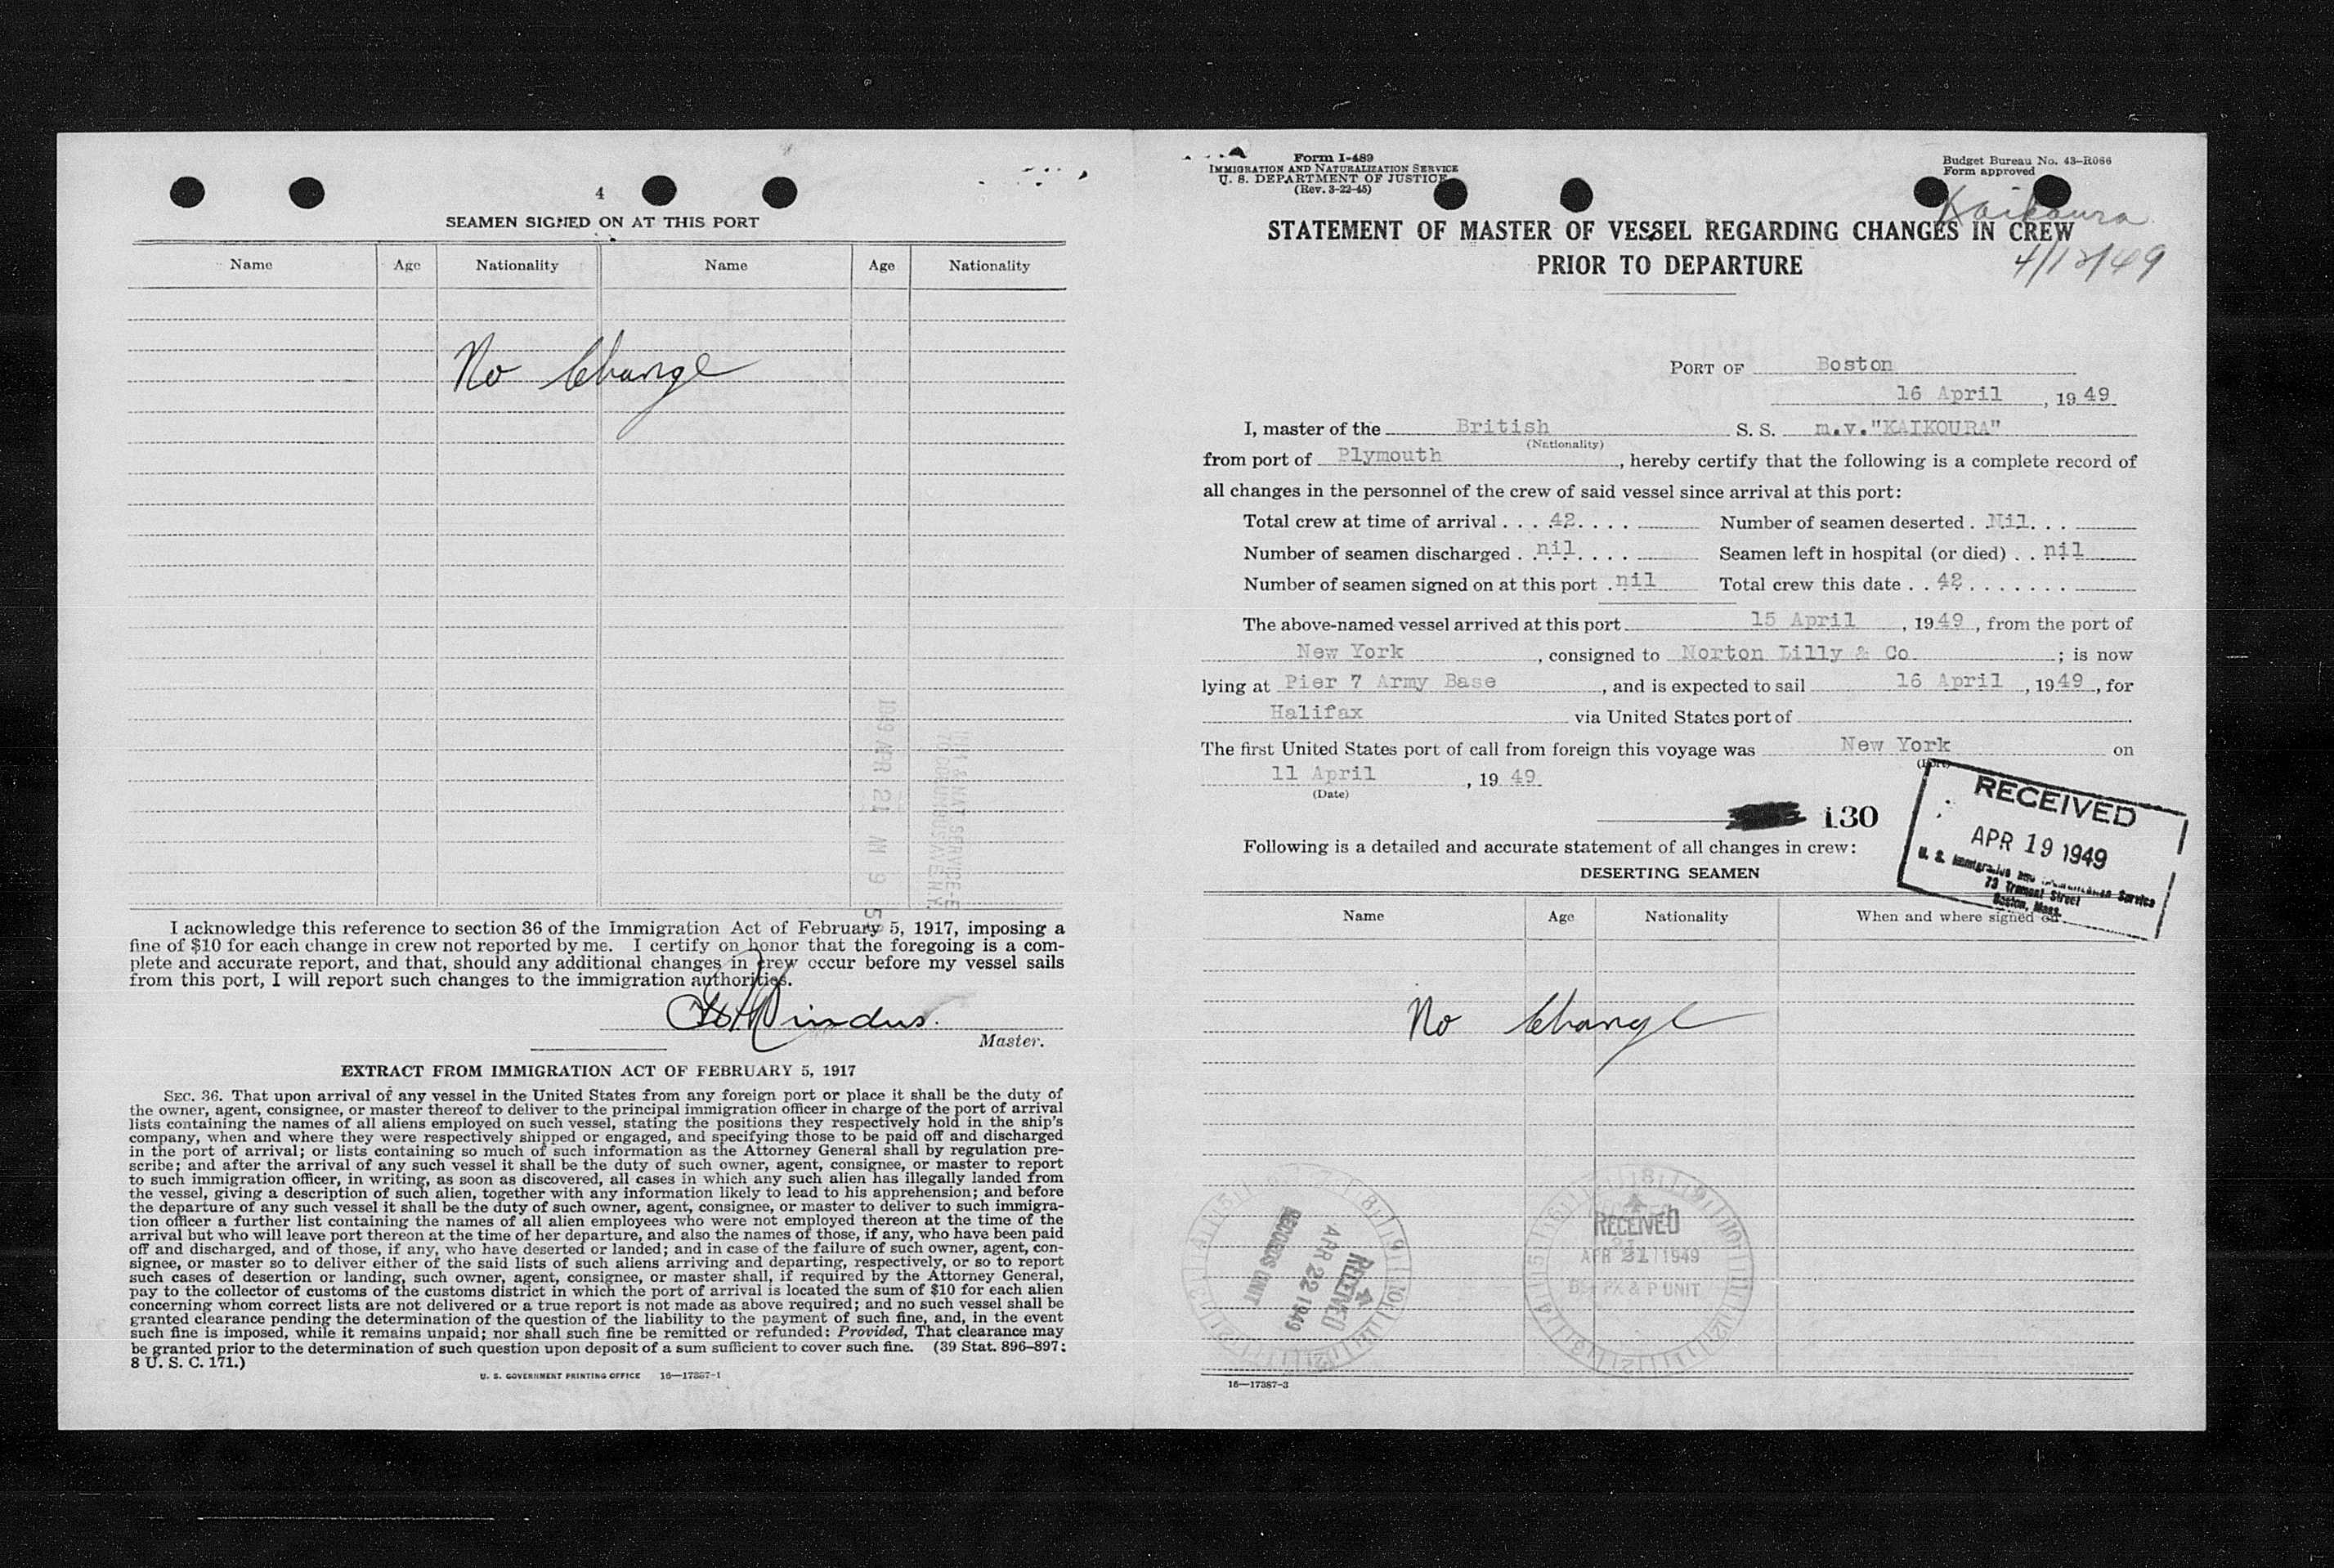 4
SEAMEN SIGNED ON AT THIS PORT
Name Age Nationality Name Age Nationality
No Change
1949 APR 21 AM 9 5
70 COLUMBUS AVE N.Y.
I acknowledge this reference to section 36 of the Immigration Act of February 5, 1917, imposing a
fine of $10 for each change in crew not reported by me. I certify on honor that the foregoing is a com-
plete and accurate report, and that, should any additional changes in crew occur before my vessel sails
from this port, I will report such changes to the immigration authorities.
Master.
EXTRACT FROM IMMIGRATION ACT OF FEBRUARY 5, 1917
SEC. 36. That upon arrival of any vessel in the United States from any foreign port or place it shall be the duty of
the owner, agent, consignee, or master thereof to deliver to the principal immigration officer in charge of the port of arrival
lists containing the names of all aliens employed on such vessel, stating the positions they respectively hold in the ship's
company, when and where they were respectively shipped or engaged, and specifying those to be paid off and discharged
in the port of arrival; or lists containing so much of such information as the Attorney General shall by regulation pre-
scribe; and after the arrival of any such vessel it shall be the duty of such owner, agent, consignee, or master to report
to such immigration officer, in writing, as soon as discovered, all cases in which any such alien has illegally landed from
the vessel, giving a description of such alien, together with any information likely to lead to his apprehension; and before
the departure of any such vessel it shall be the duty of such owner, agent, consignee, or master to deliver to such immigra-
tion officer a further list containing the names of all alien employees who were not employed thereon at the time of the
arrival but who will leave port thereon at the time of her departure, and also the names of those, if any, who have been paid
off and discharged, and of those, if any, who have deserted or landed; and in case of the failure of such owner, agent, con-
signee, or master so to deliver either of the said lists of such aliens arriving and departing, respectively, or so to report
such cases of desertion or landing, such owner, agent, consignee, or master shall, if required by the Attorney General,
pay to the collector of customs of the customs district in which the port of arrival is located the sum of $10 for each alien
concerning whom correct lists are not delivered or a true report is not made as above required; and no such vessel shall be
granted clearance pending the determination of the question of the liability to the payment of such fine, and, in the event
such fine is imposed, while it remains unpaid; nor shall such fine be remitted or refunded: Provided, That clearance may
be granted prior to the determination of such question upon deposit of a sum sufficient to cover such fine. (39 Stat. 896–897;
8 U. S. C. 171.)
U. S. GOVERNMENT PRINTING OFFICE 16—17387-1
Form I-489
IMMIGRATION AND NATURALIZATION SERVICE
U. S. DEPARTMENT OF JUSTICE
(Rev. 3-22-45)
Budget Bureau No. 43–R066
Form approved
Kaikoura
4/13/49
STATEMENT OF MASTER OF VESSEL REGARDING CHANGES IN CREW
PRIOR TO DEPARTURE
PORT OF Boston
16 April, 1949
I, master of the British S. S. m.v."KAIKOURA"
(Nationality)
from port of Plymouth, hereby certify that the following is a complete record of
all changes in the personnel of the crew of said vessel since arrival at this port:
Total crew at time of arrival . . . . 42 . . . . Number of seamen deserted . Nil . . .
Number of seamen discharged . . nil . . . . Seamen left in hospital (or died) . . nil
Number of seamen signed on at this port . nil Total crew this date . . 42 . . . . . . .
The above-named vessel arrived at this port 15 April, 1949, from the port of
New York, consigned to Norton Lilly & Co; is now
lying at Pier 7 Army Base, and is expected to sail 16 April, 1949, for
Halifax via United States port of
The first United States port of call from foreign this voyage was New York on
(Port)
11 April, 19 49
(Date)
130
RECEIVED
APR 19 1949
U. S. Immigration and Naturalization Service
73 Tremont Street
Boston, Mass.
Following is a detailed and accurate statement of all changes in crew:
DESERTING SEAMEN
Name Age Nationality When and where signed on
No Change
RECEIVED
APR 22 1949
RECORDS UNIT
RECEIVED
APR 21 1949
& P UNIT
16—17387-3